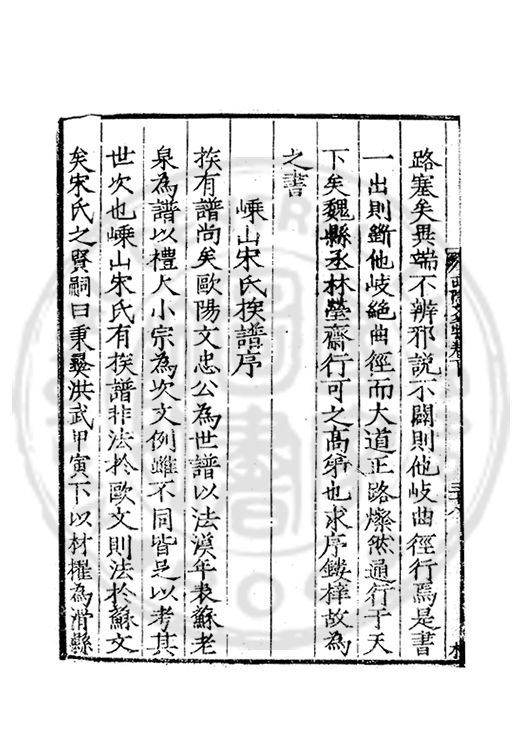 路塞矣異端不辨邪說不闢則他岐曲徑行焉是書
一出則斷他岐絕曲徑而大道正路燦然通行于天
下矣魏縣丞林瑩齋行可之高第也求序鋟梓故為
之書
嵊山宋氏族譜序
族有譜尚矣歐陽文忠公為世譜以法漢年表蘇老
泉為譜以禮大小宗為次文例雖不同皆足以考其
世次也嵊山宋氏有族譜非法於歐文則法於蘇文
矣宋氏之賢嗣曰秉彝洪武甲寅下以材擢為滑縣